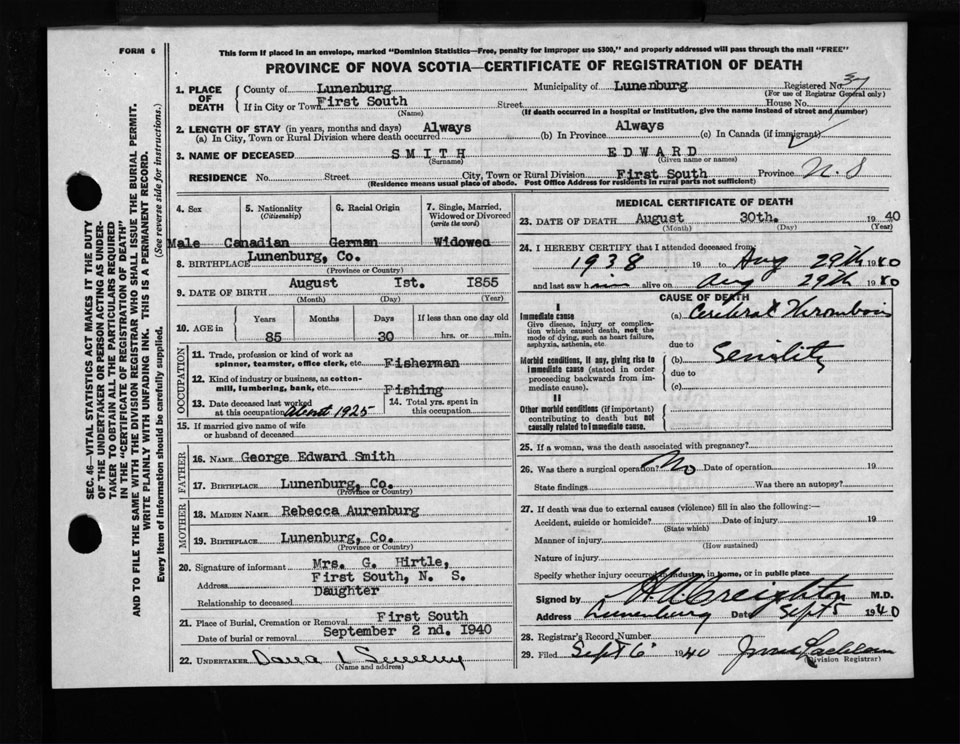 FORM 6
This form if placed in an envelope, marked "Dominion Statistics—Free, penalty for improper use $300," and properly addressed will pass through the mail "FREE"
PROVINCE OF NOVA SCOTIA—CERTIFICATE OF REGISTRATION OF DEATH
SEC. 46—VITAL STATISTICS ACT MAKES IT THE DUTY
OF THE UNDERTAKER OR PERSON ACTING AS UNDER-
TAKER TO OBTAIN ALL THE PARTICULARS REQUIRED
IN THE "CERTIFICATE OF REGISTRATION OF DEATH"
AND TO FILE THE SAME WITH THE DIVISION REGISTRAR WHO SHALL ISSUE THE BURIAL PERMIT.
WRITE PLAINLY WITH UNFADING INK. THIS IS A PERMANENT RECORD.
Every item of Information should be carefully supplied. (See reverse side for instructions.)
1. PLACE OF DEATH
County of Lunenburg Municipality of Lunenburg Registered No. 37
(For use of Registrar General only)
If in City or Town First South Street House No.
(Name) (If death occurred in a hospital or institution, give the name instead of street and number)
2. LENGTH OF STAY (in years, months and days)
(a) In City, Town or Rural Division where death occurred Always (b) In Province Always (c) In Canada (if immigrant)
3. NAME OF DECEASED SMITH EDWARD
(Surname) (Given name or names)
RESIDENCE No. Street City, Town or Rural Division First South Province N.S
(Residence means usual place of abode. Post Office Address for residents in rural parts not sufficient)
4. Sex 5. Nationality (Citizenship) 6. Racial Origin 7. Single, Married, Widowed or Divorced (write the word)
Male Canadian German Widowed
8. BIRTHPLACE Lunenburg, Co.
(Province or Country)
9. DATE OF BIRTH August 1st. 1855
(Month) (Day) (Year)
10. AGE in Years Months Days If less than one day old
85 30 hrs. or min.
OCCUPATION
11. Trade, profession or kind of work as spinner, teamster, office clerk, etc. Fisherman
12. Kind of industry or business, as cotton-mill, lumbering, bank, etc. Fishing
13. Date deceased last worked at this occupation About 1925 14. Total yrs. spent in this occupation
15. If married give name of wife or husband of deceased
FATHER
16. NAME George Edward Smith
17. BIRTHPLACE Lunenburg, Co.
(Province or Country)
MOTHER
18. MAIDEN NAME Rebecca Aurenburg
19. BIRTHPLACE Lunenburg, Co.
(Province or Country)
20. Signature of informant Mrs. G. Hirtle,
Address First South, N. S.
Relationship to deceased Daughter
21. Place of Burial, Cremation or Removal First South
Date of burial or removal September 2 nd. 1940
22. UNDERTAKER Dana L Sweeny
(Name and address)
MEDICAL CERTIFICATE OF DEATH
23. DATE OF DEATH August 30th. 1940
(Month) (Day) (Year)
24. I HEREBY CERTIFY that I attended deceased from
1938 19 to Aug 29th 1940
and last saw him alive on Aug 29th 1940
CAUSE OF DEATH
I
Immediate cause (a) Cerebral Thrombosis
Give disease, injury or complication which caused death, not the mode of dying, such as heart failure, asphyxia, asthenia, etc.
due to
Morbid conditions, if any, giving rise to immediate cause (stated in order proceeding backwards from immediate cause). (b) Senility
due to
(c)
II
Other morbid conditions (if important) contributing to death but not causally related to immediate cause.
25. If a woman, was the death associated with pregnancy?
26. Was there a surgical operation? No Date of operation 19
State findings Was there an autopsy?
27. If death was due to external causes (violence) fill in also the following:—
Accident, suicide or homicide? Date of injury 19
(State which)
Manner of injury
(How sustained)
Nature of injury
Specify whether injury occurred in industry, in home, or in public place
Signed by H A Creighton M.D.
Address Lunenburg Date Sept 5 1940
28. Registrar's Record Number
29. Filed Sept 6 1940
(Division Registrar)